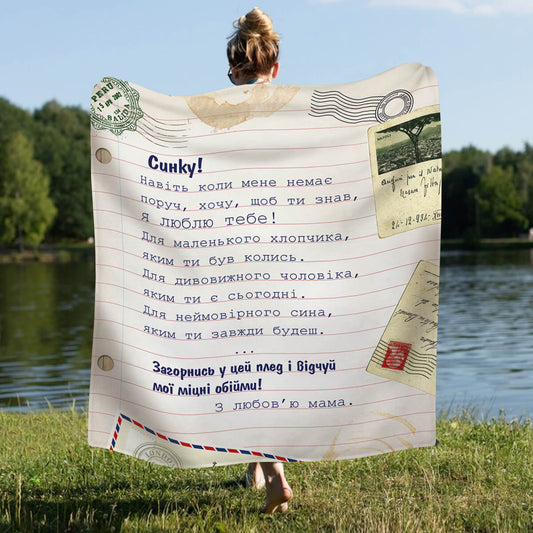 PERU
BALBOA
Синку!
Навіть коли мене немає
поруч, хочу, щоб ти знав,
Я ЛЮБЛЮ ТЕБЕ!
Для маленького хлопчика,
яким ти був колись.
Для дивовижного чоловіка,
яким ти є сьогодні.
Для неймовірного сина,
яким ти завжди будеш.
...
Загорнись у цей плед і відчуй
мої міцні обійми!
З любов'ю мама.